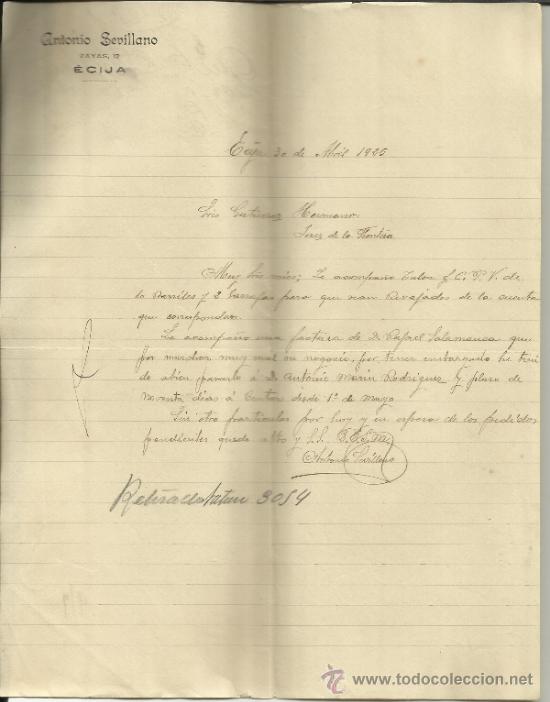 Antonio Sevillano
ZAYAS, 12
ÉCIJA
Ecija 30 de Abril 1925
Sres Gutierrez Hermanos
Jerez de la Frontera
Muy Sres mios; Le acompaño Talon f. C. P. V. de
10 Barriles y 2 Garrafas para que sean Revajados de la cuenta
que correspondan.
Le acompaño una factura de D. Rafael Salamanca que
por marchar muy mal su negocio, por tener embargado
de abien pasarla á D. Antonio Marin Rodriguez y plaso de
Noventa dias á Contar desde 1º de mayo
Sin otro particular por hoy y en espera de los pedidos
pendientes queda affo y S.S. Q.E.S.M.
Antonio Sevillano
3054
www.todocoleccion.net